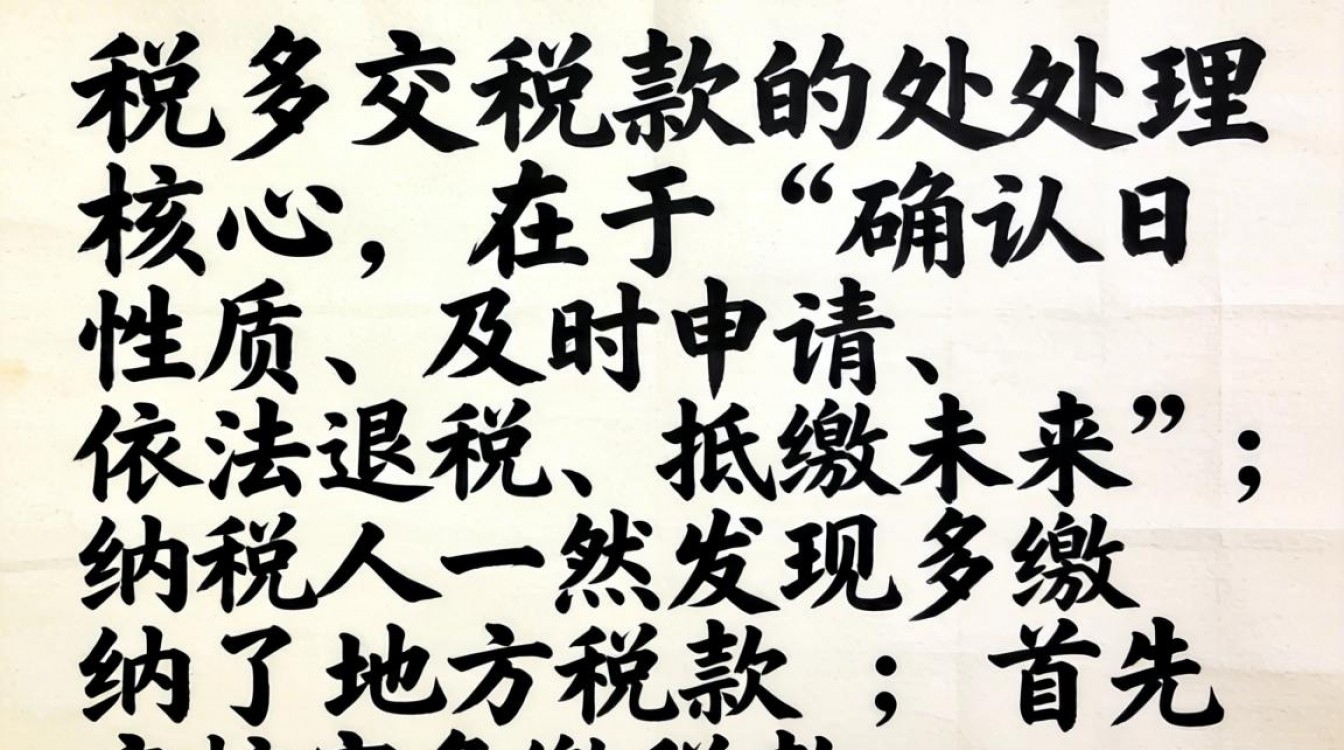 税多交税款的处处理
核心，在于“确认日
性质、及时申请、
依法退税、抵缴未来”；
纳税人一然发现多缴
纳了地方税款；首先